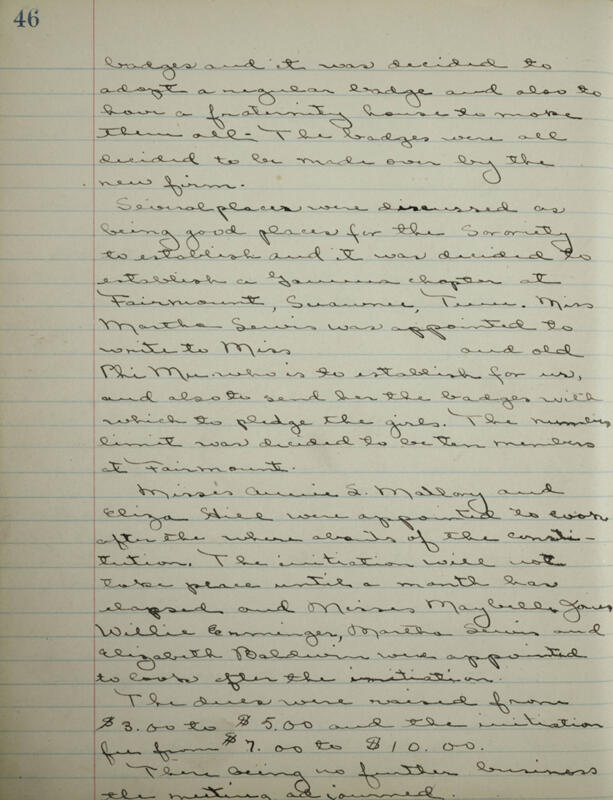 46
badges and it was decided to
adopt a regular badge and also to
have a fraternity house to make
them all - The badges were all
decided to be made over by the
new firm.
Several places were discussed as
being good places for the Sorority
to establish and it was decided to
establish a Gamma chapter at
Fairmount, Suawnee, Tenn. Miss
Martha Lewis was appointed to
write to Miss and old
Phi Mu who is to establish for us,
and also to send her the badges with
which to pledge the girls. The number
limit was decided to be ten members
at Fairmount.
Misses Annie L. Mallory and
Eliza Hill were appointed to look
after the where abouts of the consti-
tution. The initiation will not
take place until a month has
elapsed and Misses Maybelle Jones
Willie Erminger, Martha Lewis and
Elizabeth Baldwin were appointed
to look after the initiation.
The dues were raised from
$3.00 to $5.00 and the initiation
fee from $7.00 to $10.00.
There being no further business
the meeting adjourned.